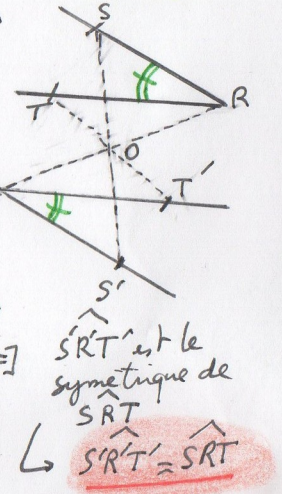 S
R
T
O
T'
S'
S'R'T' est le
symetrique de
SRT
S'R'T' = SRT